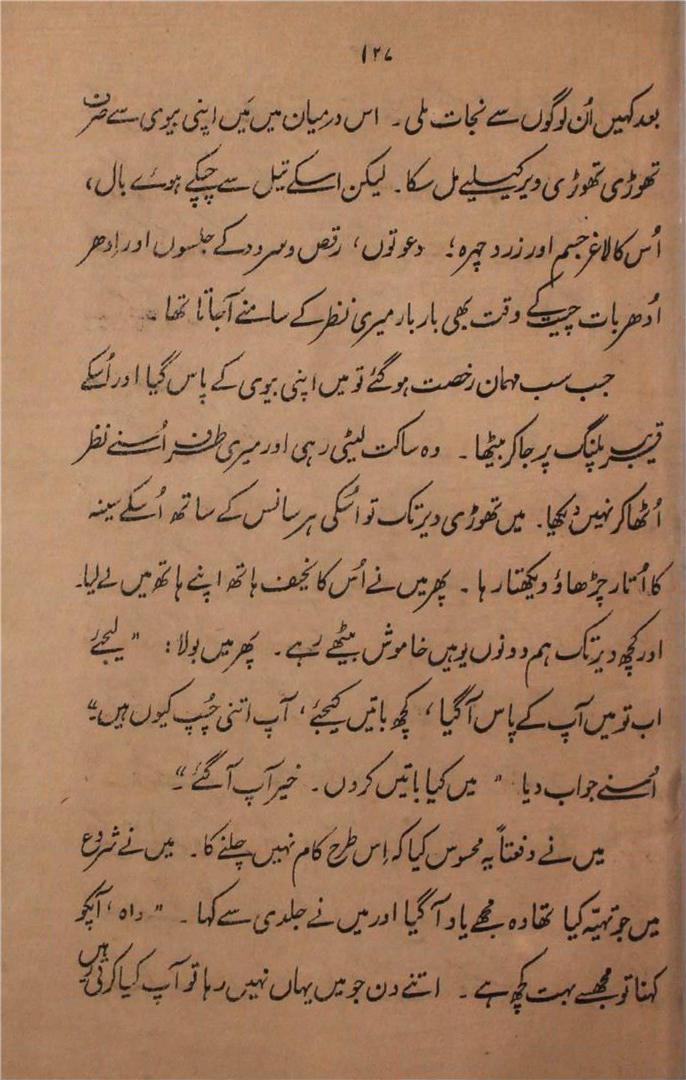 ۱۲۷
بعد کہیں اُن لوگوں سے نجات ملی۔ اس درمیان میں مَیں اپنی بیوی سے صرف
تھوڑی تھوڑی دیر کیلیے مل سکا۔ لیکن اسکے تیل سے چپکے ہوئے بال،
اُس کا لاغر جسم اور زرد چہرہ؛ دعوتوں، رقص و سرود کے جلسوں اور اِدھر
اُدھر بات چیت کے وقت بھی بار بار میری نظر کے سامنے آجاتا تھا۔
جب سب مہمان رخصت ہوگئے تو میں اپنی بیوی کے پاس گیا اور اُسکے
قریب پلنگ پر جا کر بیٹھا۔ وہ ساکت لیٹی رہی اور میری طرف اُسنے نظر
اُٹھا کر نہیں دیکھا۔ میں تھوڑی دیر تک تو اُسکی ہر سانس کے ساتھ اُسکے سینہ
کا اُتار چڑھاؤ دیکھتا رہا۔ پھر میں نے اُس کا نحیف ہاتھ اپنے ہاتھ میں لے لیا۔
اور کچھ دیر تک ہم دونوں یوہیں خاموش بیٹھے رہے۔ پھر میں بولا: ”لیجئے
اب تو میں آپ کے پاس آگیا، کچھ باتیں کیجئے، آپ اتنی چُپ کیوں ہیں“۔
اُسنے جواب دیا ”میں کیا باتیں کروں۔ خیر آپ آگئے“۔
میں نے دفعتاً یہ محسوس کیا کہ اِس طرح کام نہیں چلنے کا۔ میں نے شروع
میں جو تہیّہ کیا تھا وہ مجھے یاد آگیا اور میں نے جلدی سے کہا۔ ”واہ، آپکو
کہنا تو مجھسے بہت کچھ ہے۔ اتنے دن جو میں یہاں نہیں رہا تو آپ کیا کرتی رہیں